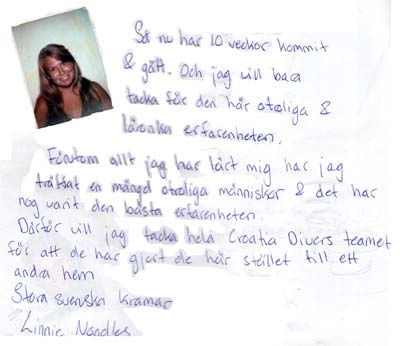 Så nu har 10 veckor kommit
& gått. Och jag vill bara
tacka för den här otroliga &
lärorika erfarenheten.
Förutom allt jag har lärt mig har jag
träffat en mängd otroliga människor & det har
nog varit den bästa erfarenheten.
Därför vill jag tacka hela Croatia Divers teamet
för att de har gjort de här stället till ett
andra hem
Stora svenska kramar
Linnie